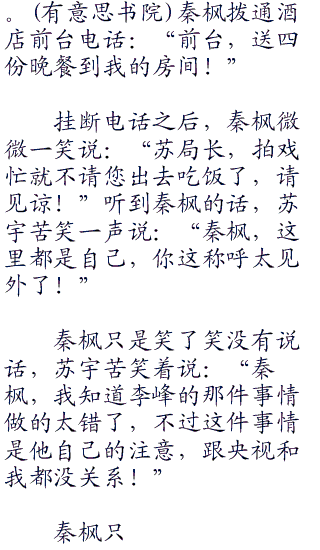 。(有意思书院)秦枫拨通酒
店前台电话：“前台，送四
份晚餐到我的房间！”
挂断电话之后，秦枫微
微一笑说：“苏局长，拍戏
忙就不请您出去吃饭了，请
见谅！”听到秦枫的话，苏
宇苦笑一声说：“秦枫，这
里都是自己，你这称呼太见
外了！”
秦枫只是笑了笑没有说
话，苏宇苦笑着说：“秦
枫，我知道李峰的那件事情
做的太错了，不过这件事情
是他自己的注意，跟央视和
我都没关系！”
秦枫只